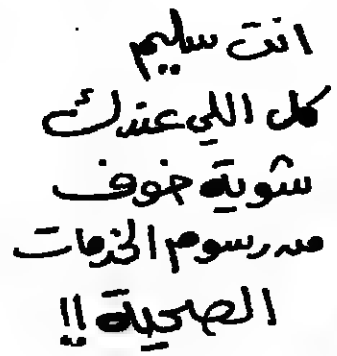 انت سليم
كل اللي عندك
شوية خوف
من رسوم الخدمات
الصحية !!